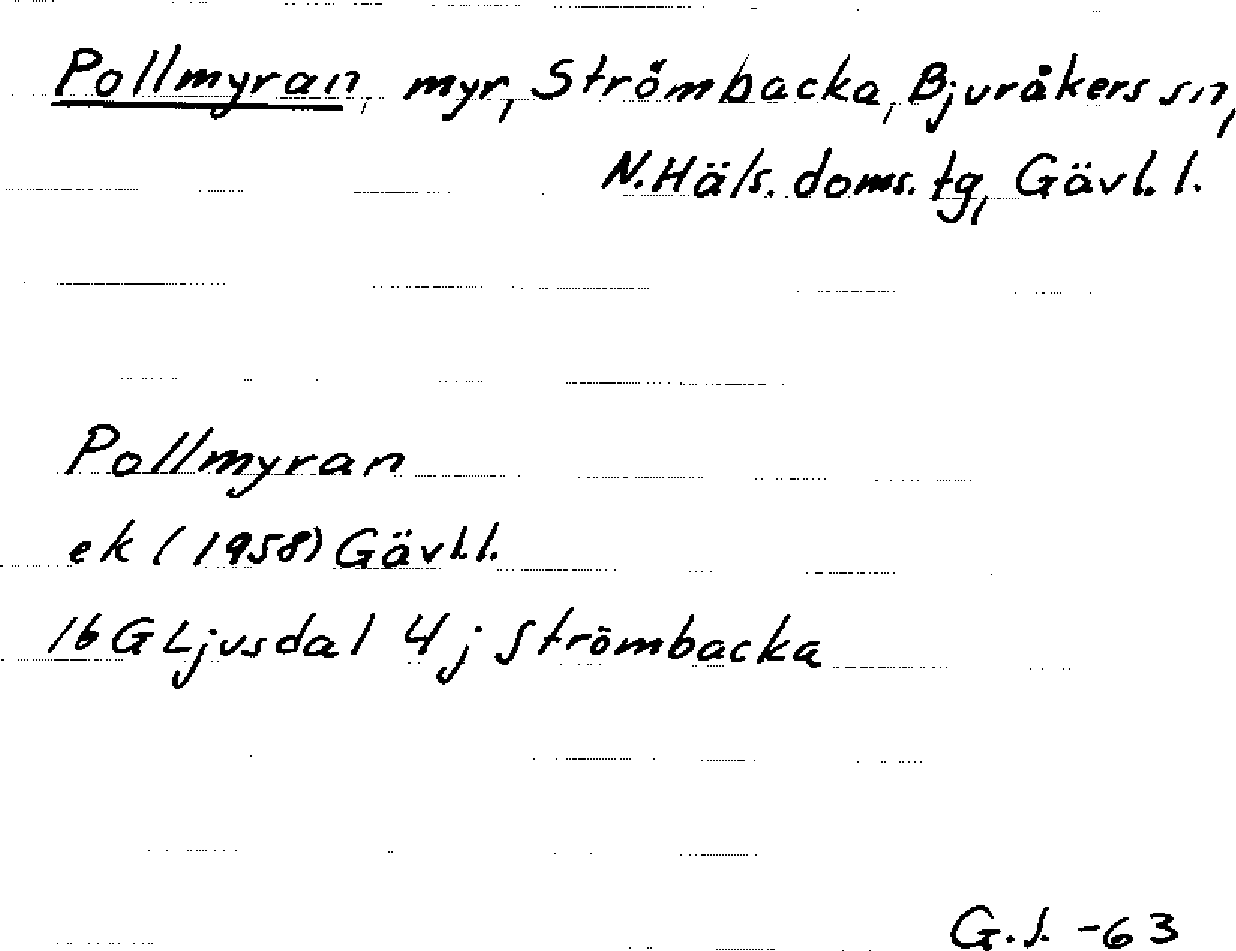 Pollmyran, myr, Strömbacka, Bjuråkers sn,
N. Häls. doms. tg, Gävl. l.
Pollmyran
ek (1958) Gävl. l.
16 G Ljusdal 4 j Strömbacka
G. S. -63